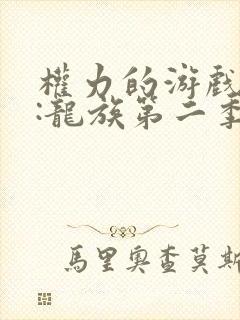 權力的游戲
:龍族第二季
馬里奧查莫斯